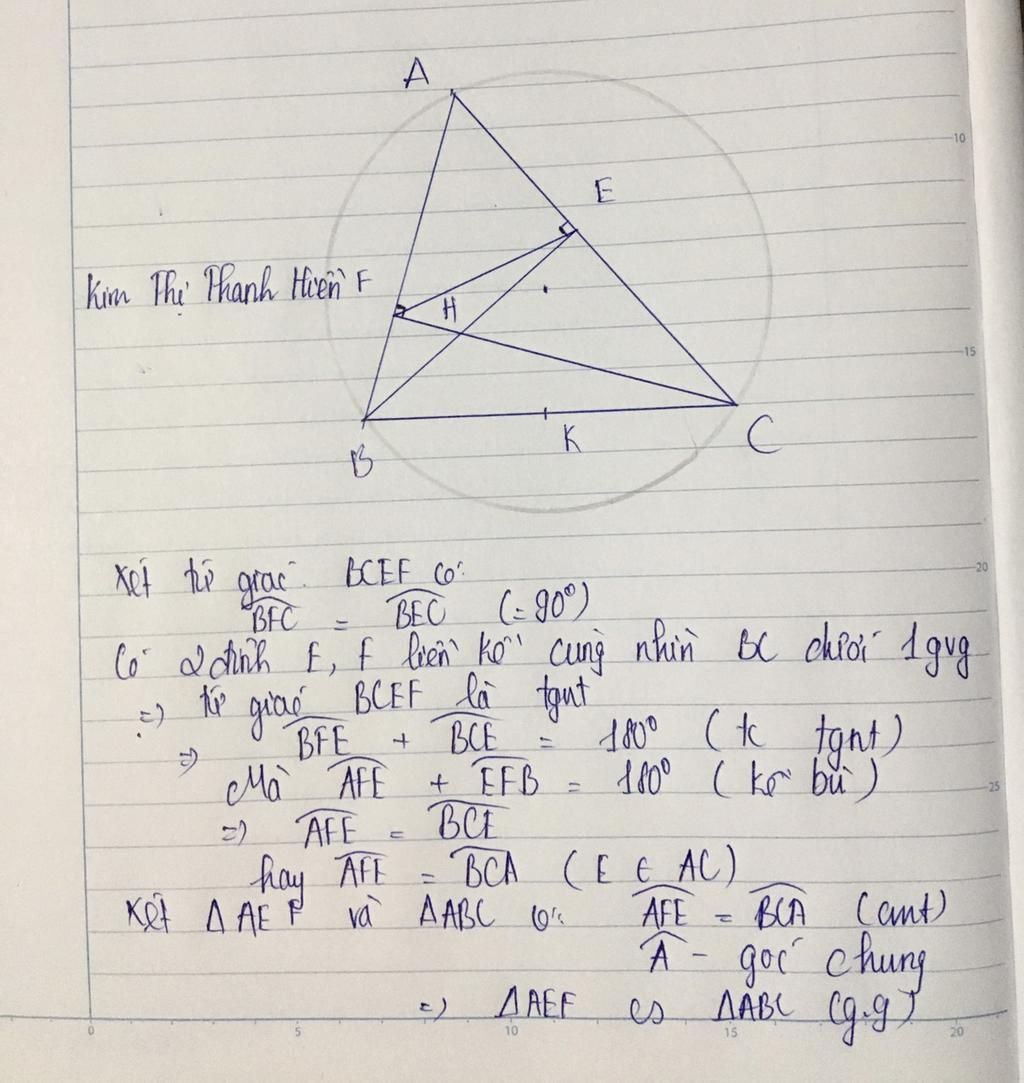 A
E
Kim Thị Thanh Hiền F
H
B
K
C
10
15
20
25
Xét tứ giác BCEF có:
BFC = BEC (= 90°)
Có 2 đỉnh E, F liền kề cùng nhìn BC dưới 1 gvg
=> tứ giác BCEF là tgnt
=> BFE + BCE = 180° (tc tgnt)
Mà AFE + EFB = 180° (kề bù)
=> AFE = BCE
hay AFE = BCA (E ∈ AC)
Xét ΔAEF và ΔABC có: AFE = BCA (cmt)
A - góc chung
=> ΔAEF ∽ ΔABC (g.g)
0 5 10 15 20